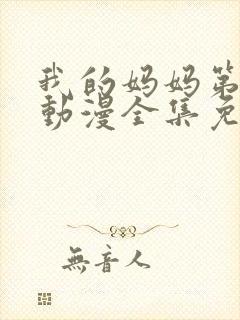 我的妈妈第
動漫全集免
無音人